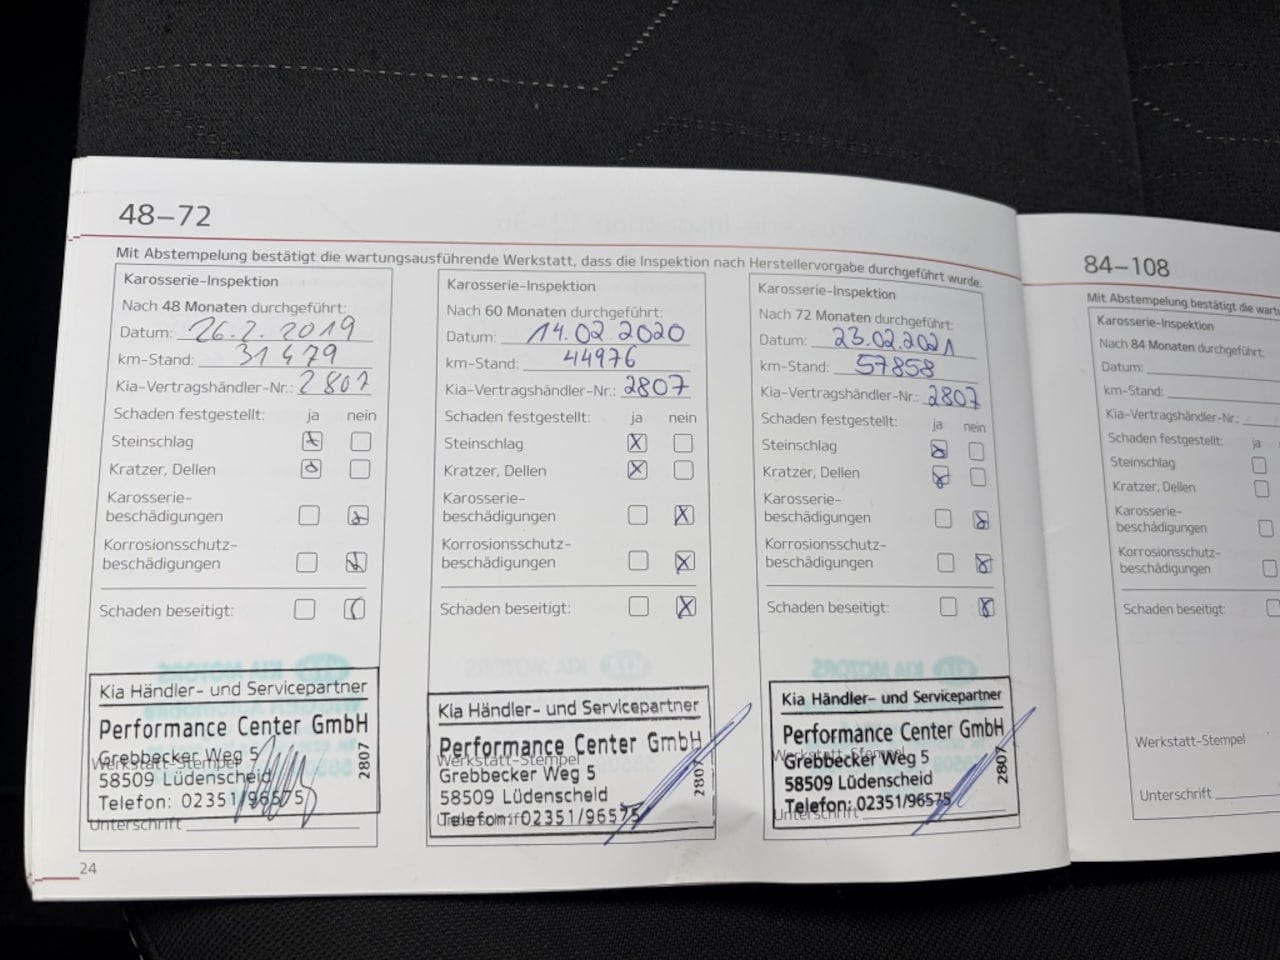 48–72
Mit Abstempelung bestätigt die wartungsausführende Werkstatt, dass die Inspektion nach Herstellervorgabe durchgeführt wurde.
Karosserie-Inspektion
Nach 48 Monaten durchgeführt:
Datum: 26.2.2019
km-Stand: 31479
Kia-Vertragshändler-Nr.: 2807
Schaden festgestellt: ja nein
Steinschlag
Kratzer, Dellen
Karosserie-
beschädigungen
Korrosionsschutz-
beschädigungen
Schaden beseitigt:
Kia Händler- und Servicepartner
Performance Center GmbH
Grebbecker Weg 5
Werkstatt-Stempel
58509 Lüdenscheid
Telefon: 02351/96575
2807
Unterschrift
24
Karosserie-Inspektion
Nach 60 Monaten durchgeführt:
Datum: 14.02.2020
km-Stand: 44976
Kia-Vertragshändler-Nr.: 2807
Schaden festgestellt: ja nein
Steinschlag X
Kratzer, Dellen X
Karosserie-
beschädigungen X
Korrosionsschutz-
beschädigungen X
Schaden beseitigt: X
Kia Händler- und Servicepartner
Performance Center GmbH
Werkstatt-Stempel
Grebbecker Weg 5
58509 Lüdenscheid
Telefon: 02351/96575
2807
Karosserie-Inspektion
Nach 72 Monaten durchgeführt:
Datum: 23.02.2021
km-Stand: 57858
Kia-Vertragshändler-Nr.: 2807
Schaden festgestellt: ja nein
Steinschlag
Kratzer, Dellen
Karosserie-
beschädigungen
Korrosionsschutz-
beschädigungen
Schaden beseitigt:
Kia Händler- und Servicepartner
Performance Center GmbH
Werkstatt-Stempel
Grebbecker Weg 5
58509 Lüdenscheid
Telefon: 02351/96575
2807
Unterschrift
84–108
Mit Abstempelung bestätigt die
Karosserie-Inspektion
Nach 84 Monaten durchgeführt:
Datum:
km-Stand:
Kia-Vertragshändler-Nr.:
Schaden festgestellt: ja
Steinschlag
Kratzer, Dellen
Karosserie-
beschädigungen
Korrosionsschutz-
beschädigungen
Schaden beseitigt:
Werkstatt-Stempel
Unterschrift